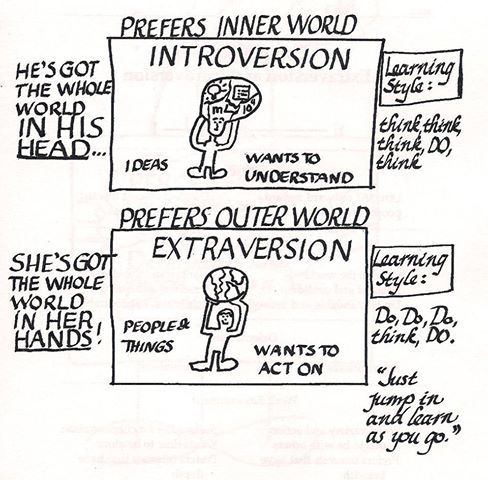 PREFERS INNER WORLD
INTROVERSION
HE'S GOT
THE WHOLE
WORLD
IN HIS
HEAD...
m
IDEAS
WANTS TO
UNDERSTAND
Learning
Style:
think, think,
think, DO,
think
PREFERS OUTER WORLD
EXTRAVERSION
SHE'S GOT
THE WHOLE
WORLD
IN HER
HANDS!
PEOPLE &
THINGS
WANTS TO
ACT ON
Learning
Style:
Do, Do, Do,
think, DO.
"Just
jump in
and learn
as you go."